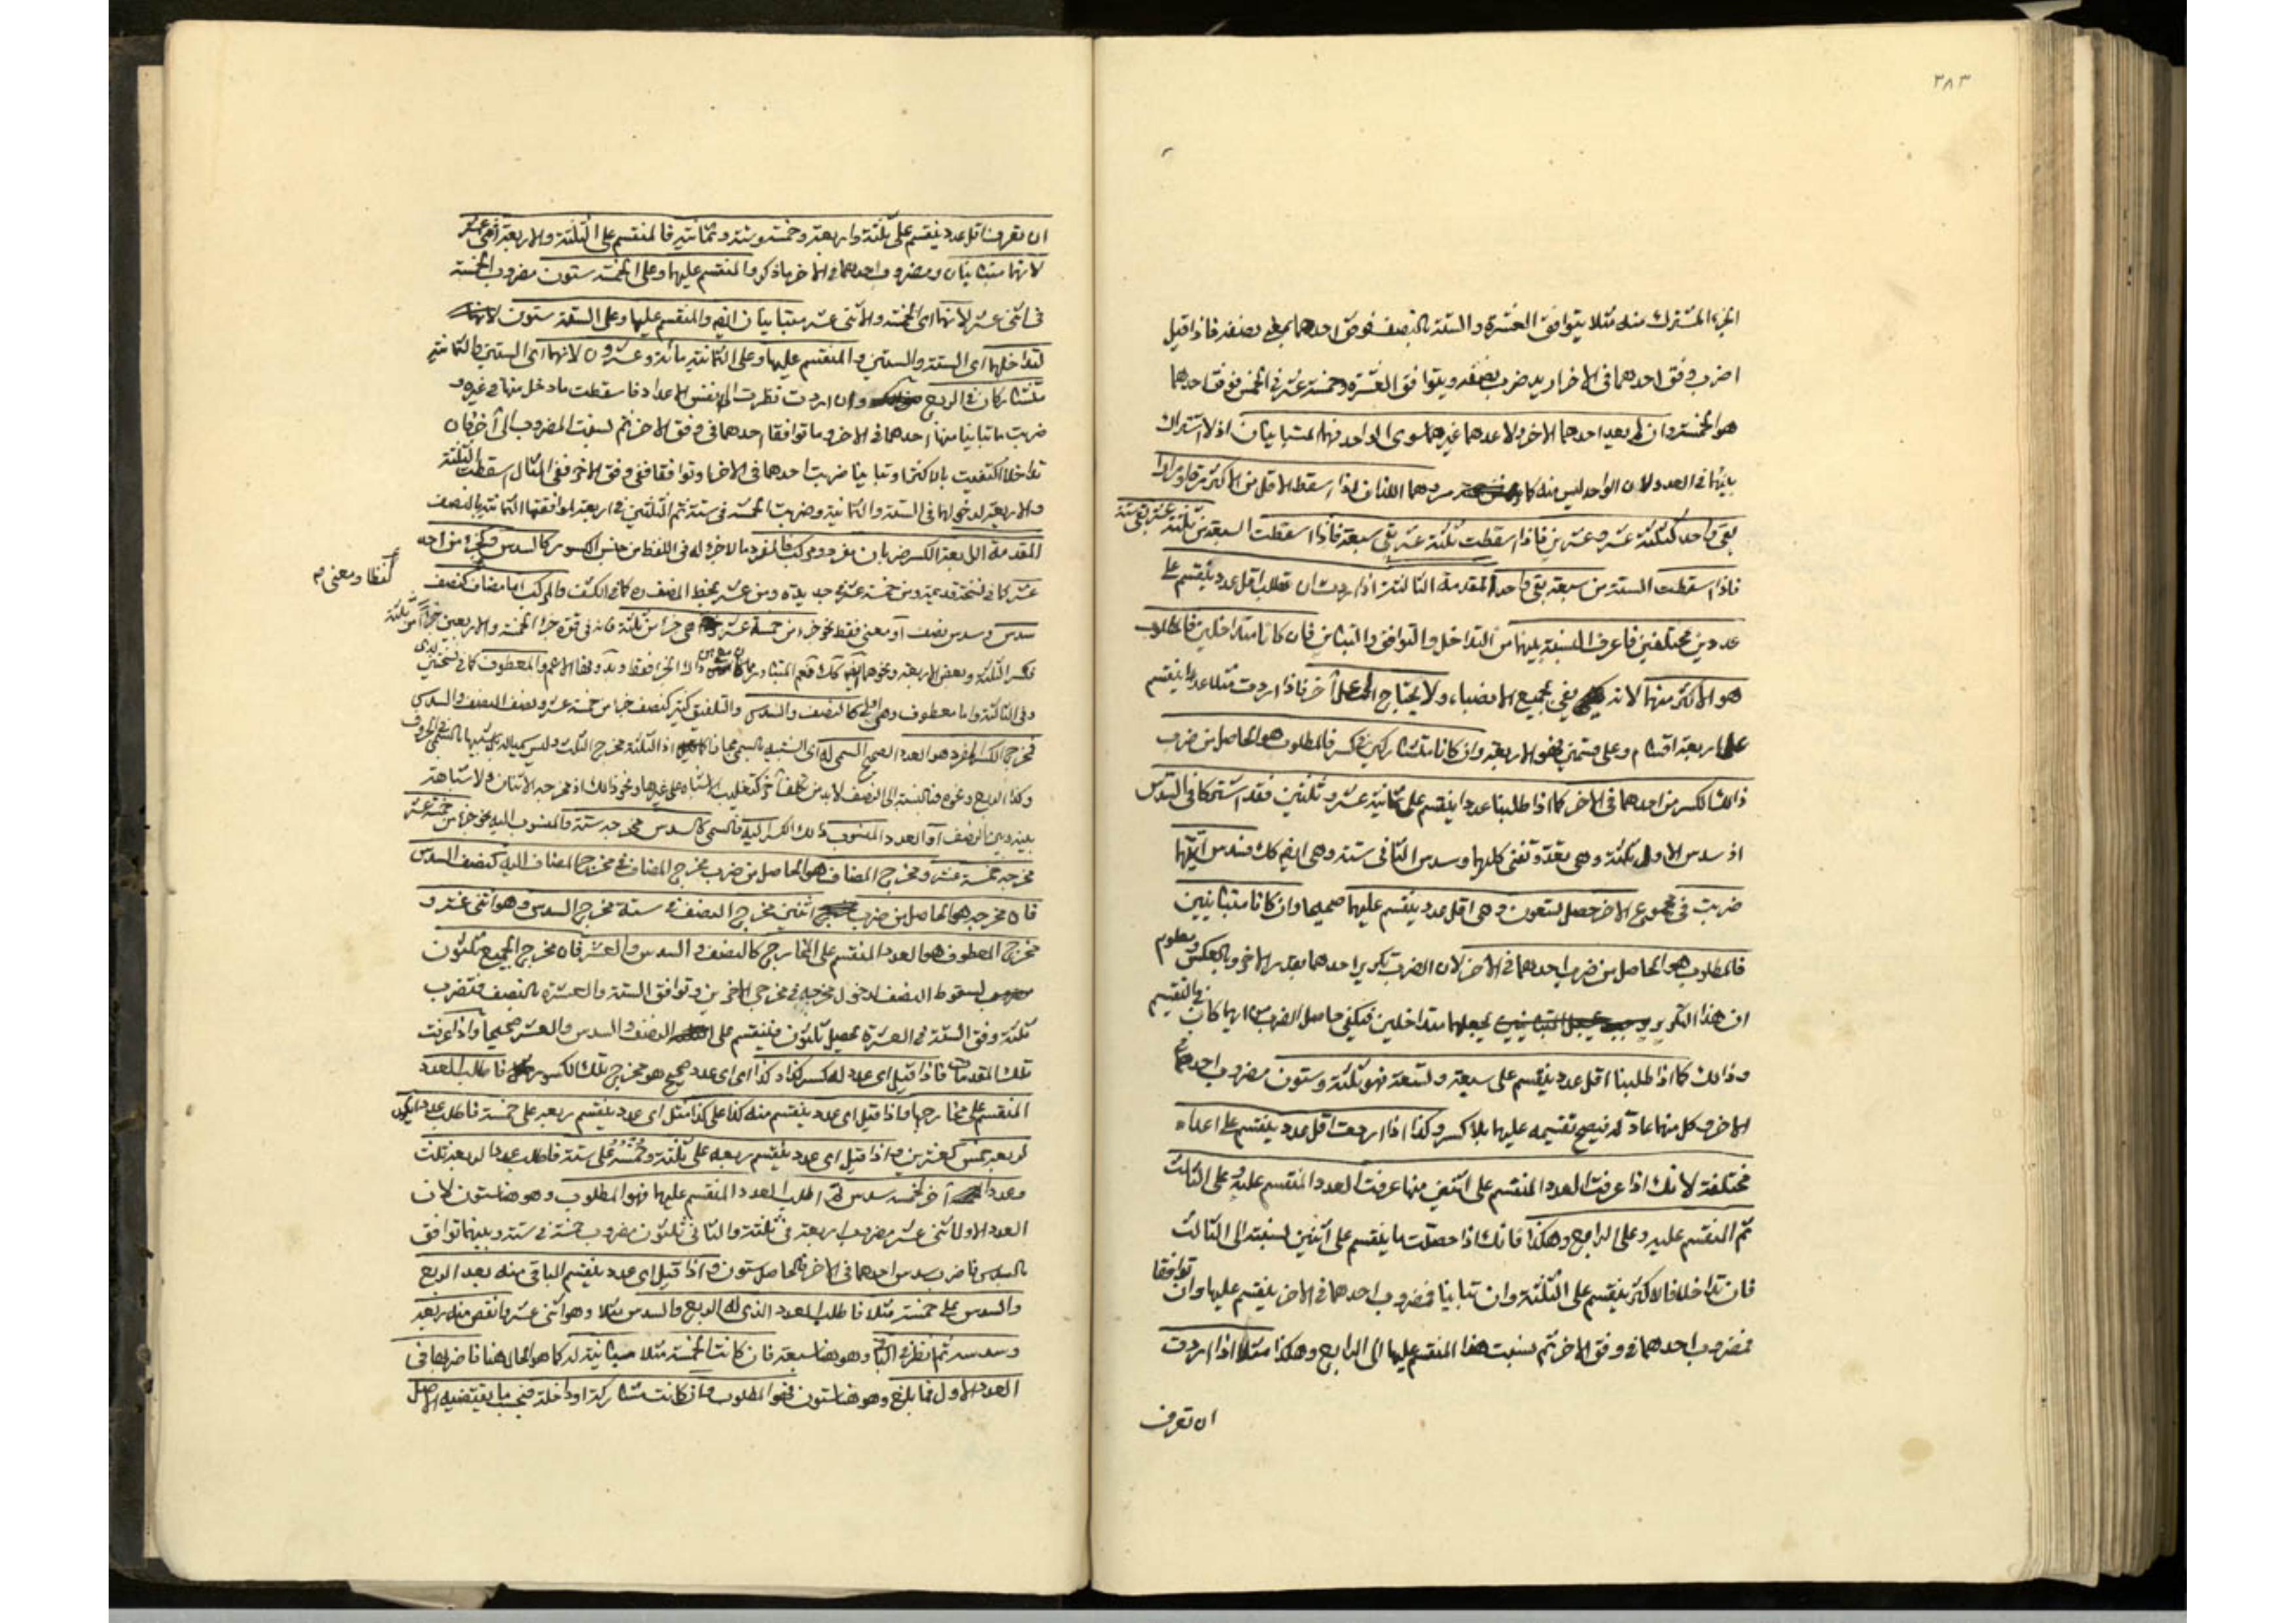 ٣٨٣
الجزء المشترك منه مثلا يتوافق العشرة والستة بالنصف فوفق احدهما نصفه فاذا قيل
اضرب وفق احدهما فى الاخر اريد ضرب نصفه ويتوافق العشرة وخمسة عشر فى الخمس فوفق احدهما
هو الخمس وان لم يعد احدهما الاخر ولا عدهما غيرهما سوى الواحد فهما المتباينان اذ لا اشتراك
بينهما فى العدد لان الواحد ليس منه كما هما اللذان اذا اسقط الاقل من الاكثر مرة او مرارا
بقى واحد كثلثة عشر وعشرين فاذا اسقطت ثلثة عشر بقى سبعة فاذا اسقطت السبعة من ثلثة عشر بقى ستة
فاذا اسقطت الستة من سبعة بقى واحد المقدمة الثالثة اذا اردت ان تطلب اقل عدد ينقسم على
عددين مختلفين فاعرف النسبة بينهما من التداخل والتوافق والتباين فان كانا متداخلين فالمطلوب
هو الاكثر منهما لانه يفى بجميع الانصباء ولا يحتاج الى عمل آخر فاذا اردت مثلا عددا ينقسم
على اربعة اقسام وعلى قسمين فهو الاربعة وان كانا متشاركين فى كسر فالمطلوب هو الحاصل من ضرب
ذالك الكسر من احدهما فى الاخر كما اذا طلبنا عددا ينقسم على ثمانية عشر وثلثين فقد اشتركا فى السدس
اذ سدس الاول ثلثة وهى تعده وتفنى كليهما وسدس الثانى ستة وهى ايضا كك فسدس ايهما
ضربت فى مجموع الاخر حصل تسعون وهى اقل عدد ينقسم عليهما صحيحا وان كانا متباينين
فالمطلوب هو الحاصل من ضرب احدهما فى الاخر لان الضرب تكرير احدهما بقدر الاخر وبالعكس ومعلوم
ان هذا التكرير يجعلهما متداخلين فيكفى حاصل الضرب ايما كان فى التقسيم
وذالك كما اذا طلبنا اقل عدد ينقسم على سبعة وتسعة فهو ثلثة وستون مضروب احدهما فى
الاخر وكل منهما عاد له فيصح تقسيمه عليهما بلا كسر وكذا اذا اردت اقل عدد ينقسم على اعداد
مختلفة لانك اذا عرفت العدد المنقسم على اثنين منها عرفت العدد المنقسم عليه وعلى الثالث
ثم المنقسم عليه وعلى الرابع وهكذا فانك اذا حصلت ما ينقسم على اثنين نسبته الى الثالث
فان تداخلا فالاكثر ينقسم على الثلثة وان تباينا فمضروب احدهما فى الاخر ينقسم عليها وان توافقا
فمضروب احدهما فى وفق الاخر ثم نسبت هذا المنقسم عليها الى الرابع وهكذا مثلا اذا اردت
ان تعرف
ان تعرف اقل عدد ينقسم على ثلثة واربعة وخمسة وستة وثمانية فالمنقسم على الثلثة والاربعة اثنى عشر
لانهما متباينان ومضروب احدهما فى الاخر ما ذكر والمنقسم عليهما وعلى الخمسة ستون مضروب الخمسة
فى اثنى عشر لانهما اى الخمسة والاثنى عشر متباينان ايضا والمنقسم عليها وعلى الستة ستون
لتداخلهما اى الستة والستين والمنقسم عليها وعلى الثمانية مائة وعشرون لانهما اى الستين والثمانية
متشاركان فى الربع وان اردت نظرت الى نفس الاعداد فاسقطت ما دخل منها فى غيره و
ضربت ما تباينا منها احدهما فى الاخر وما توافقا احدهما فى وفق الاخر ثم نسبت المضروب الى آخر فان
تداخلا اكتفيت بالاكثر او تباينا ضربت احدهما فى الاخر او توافقا ففى وفق الاخر ففى المثال اسقطت الثلثة
والاربعة لدخولهما فى الستة والثمانية وضربت الخمسة فى ستة ثم الثلثين فى اربعة لموافقتها الثمانية بالنصف
المقدمة الرابعة الكسر ضربان مفرد ومركب فالمفرد ما لا جزء له فى اللفظ من جنس الكسور كالسدس وكجزء من احد
عشر كما فى نسخة قديمة ومن خمسة عشر جديدة ومن عشر بخط المصنف كما فى الكشف والمركب اما مضاف كنصف
لفظا ومعنى م
سدس وسدس نصف او معنى فقط نحو جزء من خمسة عشر جزءا من ثلثة فانه فى قوة جزء الخمسة والاربعين جزءا من ثلثة
وفى الثالثة واما معطوف وهى كالنصف والسدس والتلفيق كنصف جزء من خمسة عشر ونصف النصف والسدس
فمخرج الكسر المفرد هو العدد الصحيح السمى له اى الشبيه بالسمى مجازا
مخرجه خمسة عشر ومخرج المضاف هو الحاصل من ضرب مخرج المضاف فى مخرج المضاف اليه كنصف السدس
فان مخرجه هو الحاصل من ضرب اثنين مخرج النصف فى ستة مخرج السدس وهو اثنى عشر و
مخرج المعطوف هو العدد المنقسم على المخارج كالنصف والسدس والعشر فان مخرج الجميع ثلثون
لسقوط النصف لدخول مخرجه فى مخرجى الاخرين وتوافق الستة والعشرة بالنصف فتضرب
ثلثة وفق الستة فى العشرة تحصل ثلثون فينقسم على النصف والسدس والعشر صحيحا واذا عرفت
تلك المقدمات فاذا قيل اى عدد له كسر كذا وكذا اى اى عدد صحيح هو مخرج تلك الكسور فاطلب العدد
المنقسم على مخارجها واذا قيل اى عدد ينقسم منه كذا على كذا مثل اى عدد ينقسم ربعه على خمسة فاطلب عددا يكون
لربعه خمس كعشرين واذا قيل اى عدد ينقسم ربعه على ثلثة وخمسه على ستة فاطلب عددا لربعه ثلث
وعددا آخر لخمسه سدس ثم اطلب العدد المنقسم عليهما فهو المطلوب وهو هنا ستون لان
العدد الاول اثنى عشر مضروب اربعة فى ثلثة والثانى ثلثون مضروب خمسة فى ستة وبينهما توافق
بالسدس فاضرب سدس احدهما فى الاخر فالحاصل ستون واذا قيل اى عدد ينقسم الباقى منه بعد الربع
والسدس على خمسة مثلا فاطلب العدد الذى له الربع والسدس مثلا وهو اثنى عشر وانقص منه ربعه
وسدسه ثم انظر فى الباقى وهو هنا سبعة فان كانت الخمسة مثلا مباينة له كما هو الحال هنا فاضربها فى
العدد الاول فما بلغ وهو هنا ستون فهو المطلوب وان كانت مشاركة او داخلة فبحسب ما يقتضيه الاصل